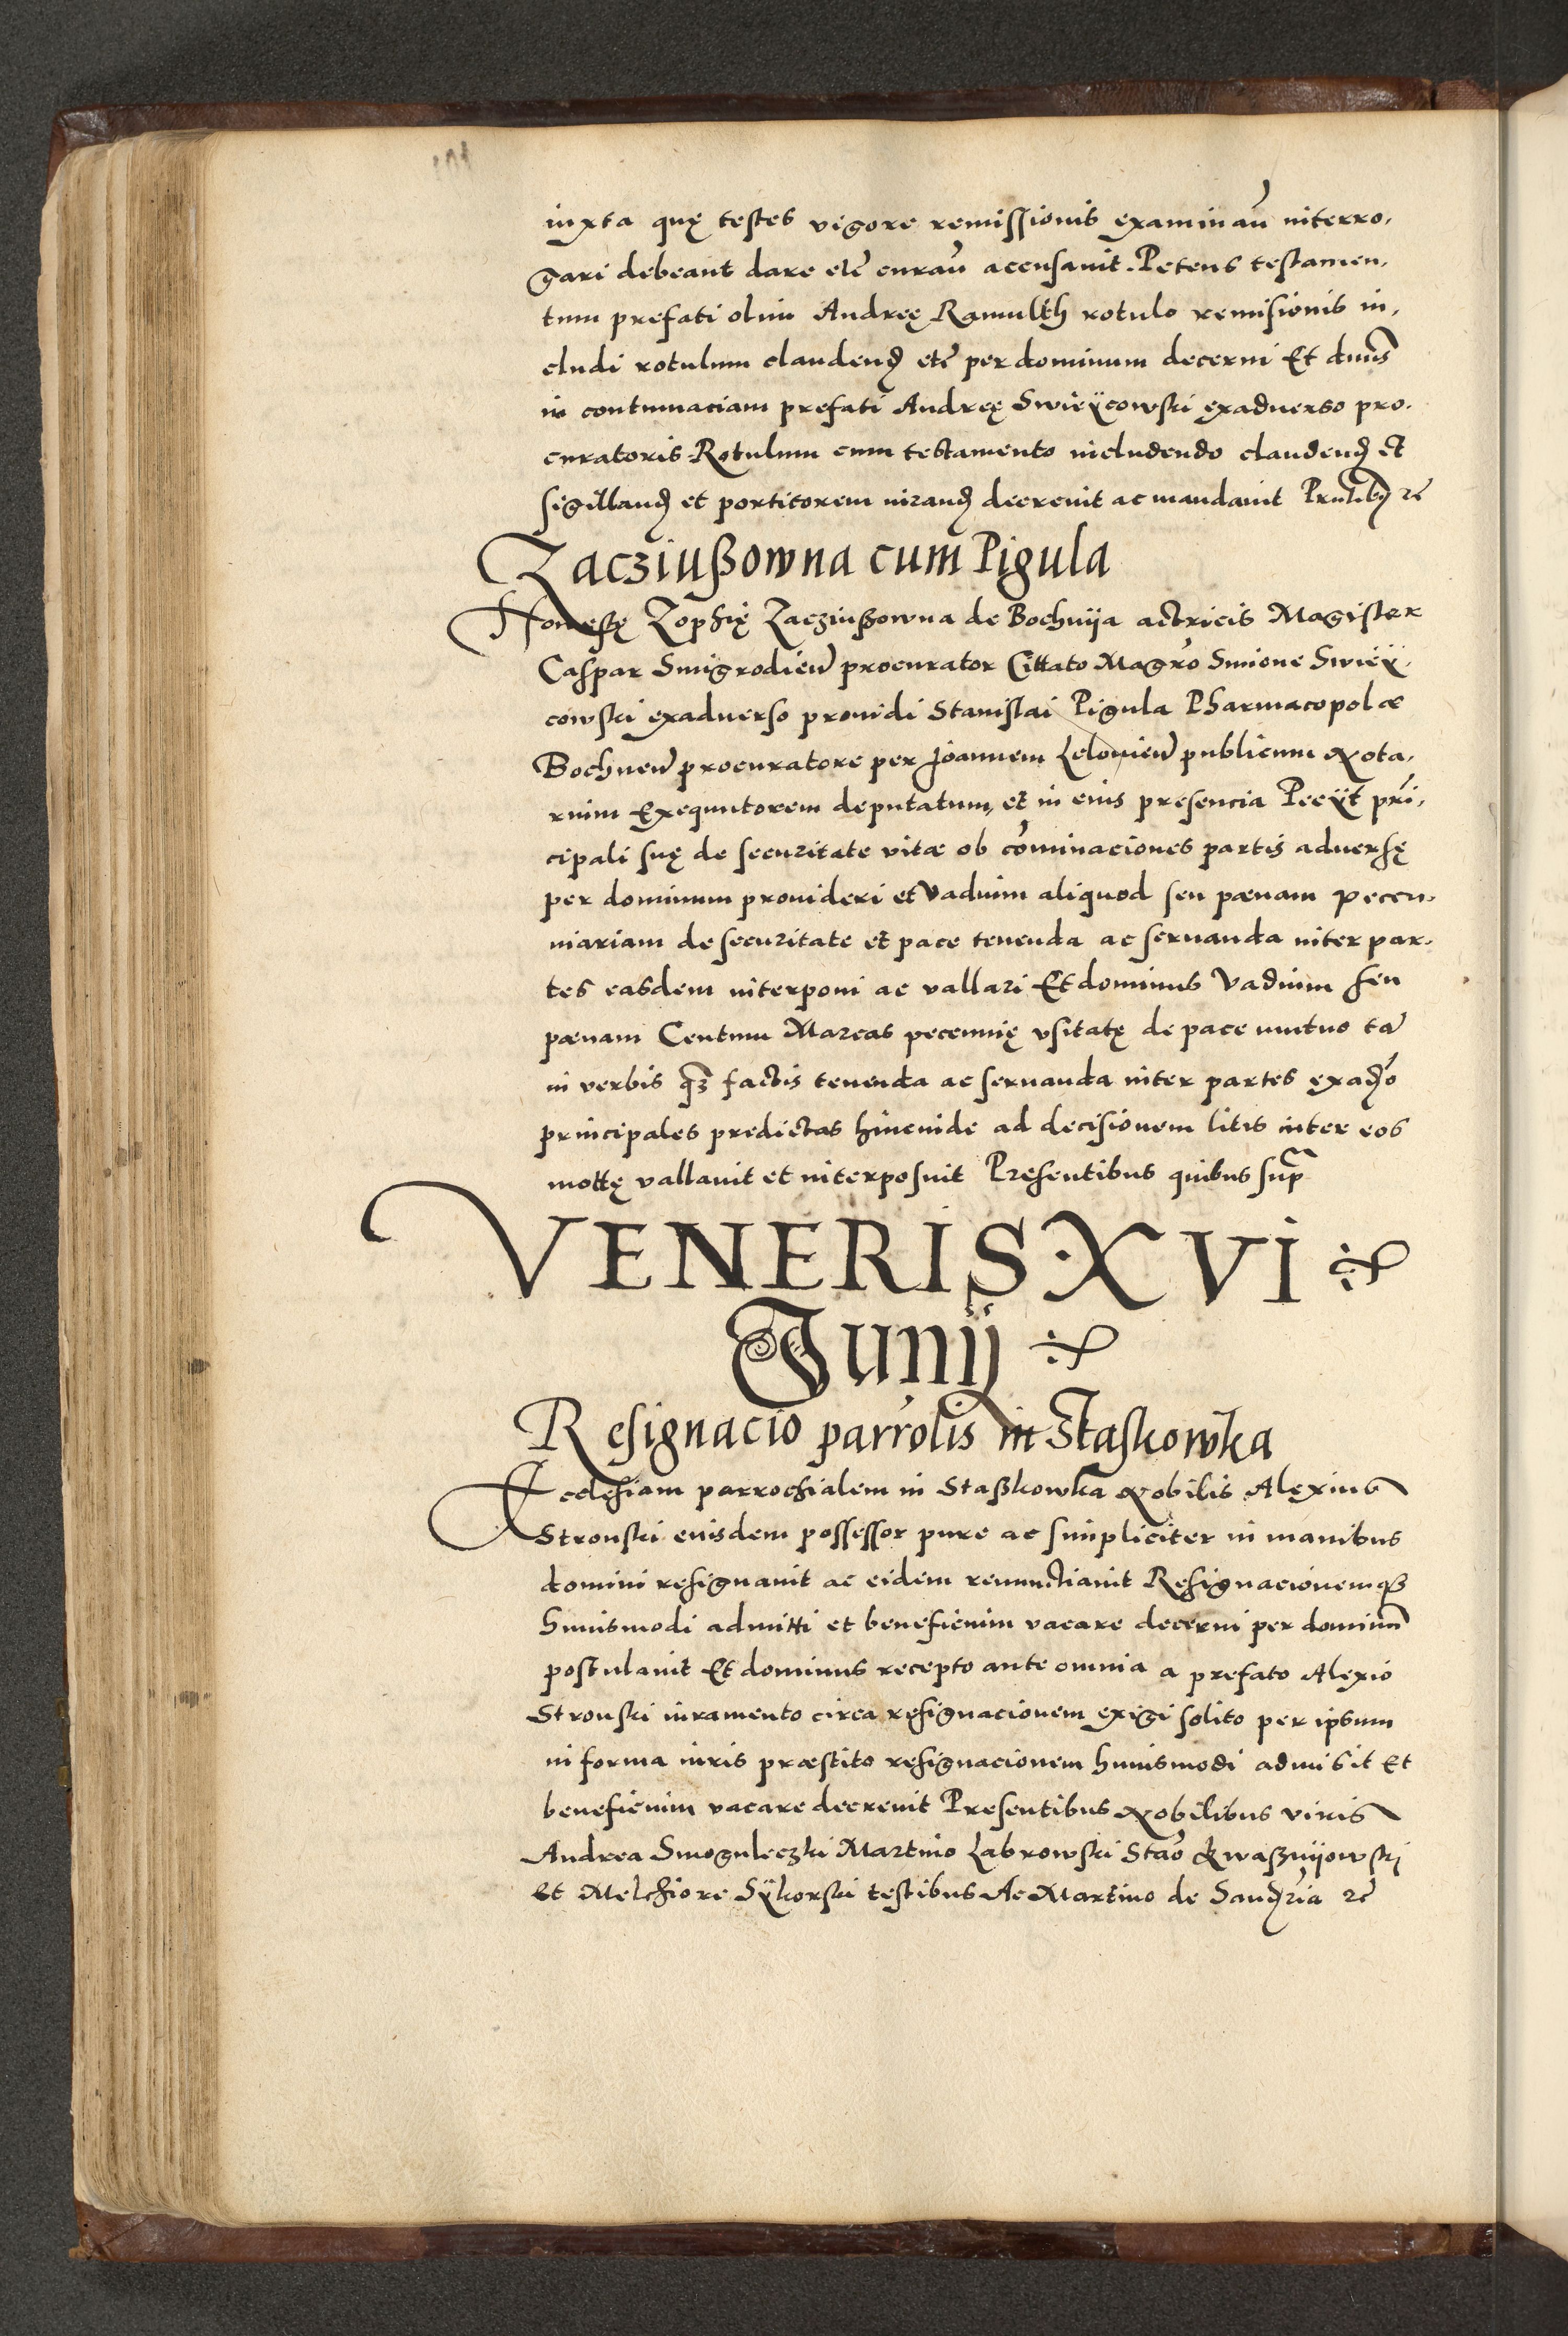 iuxta quę testes vigore remissionis examinan̄ interro,
gari debeant dare etc̄ curaū accusauit. Petens testamen,
tum prefati olim Andreę Ramulth rotulo remisionis in,
cludi rotulum claudend̄ etc̄ per dominum decerni Et dn̄us
in contumaciam prefati Andreę Swieÿcowski exaduerso pro,
curatoris Rotulum cum testamento includendo claudend̄ et
sigilland̄ et portitorem iurand̄ decreuit ac mandauit Prn̄tib9 rc̄
Zacziußowna cum Pigula
Honestę Zophię Zacziußowna de Bochnija actricis Magister
Caspar Smigrodien̄ procurator Cittato Magr̄o Simone Swieÿ,
cowski exaduerso prouidi Stanislai Pigula Pharmacopolæ
Bochnen̄ procuratore per Joannem Lelouien̄ publicum Nota,
rium Exequutorem deputatum, et in eius presencia Peeÿt prī,
cipali suę de securitate vitæ ob cōminaciones partis aduersę
per dominum prouideri et Vadium aliquod seu pœnam pecu,
niariam de securitate et pace tenenda ac seruanda inter par,
tes easdem interponi ac vallari Et dominus Vadium seu
pœnam Centum Marcas pecunię vsitatę de pace mutuo tā
in verbis q̄ꝫ factis tenenda ac seruanda inter partes exad̄o
principales predictas hincinde ad decisionem litis inter eos
mottę vallauit et interposuit Presentibus quibus sup̄
VENERIS XVI
Junij
Resignacio parr̄olis in Staskowka
Ecclesiam parrochialem in Staßkowka Nobilis Alexius
Stronski eiusdem possessor pure ac simpliciter in manibus
domini resignauit ac eidem renunctiauit Resignacionemqꝫ
huiusmodi admitti et beneficium vacare decerni per dominū
postulauit Et dominus recepto ante omnia a prefato Alexio
Stronski iuramento circa resignacionem exigi solito per ipsum
in forma iuris præstito resignacionem huiusmodi admisit Et
beneficium vacare decreuit Presentibus Nobilibus viris
Andrea Smoguleczki Martino Labrowski Stāo Kwaßnijowskj
et Melchiore Sÿkorski testibus Ac Martino de Sand̄ria rc̄